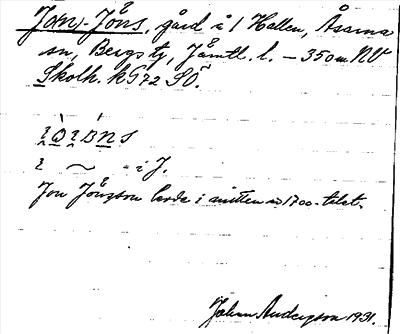 Jon-Jöns, gård i Hallen, Åsarna
sn, Bergs tg, Jämtl. l. – 350 m NV
Skolh. k 572 SÖ.
Jon Jönsson levde i mitten av 1700-talet.
Johan Andersson 1931.